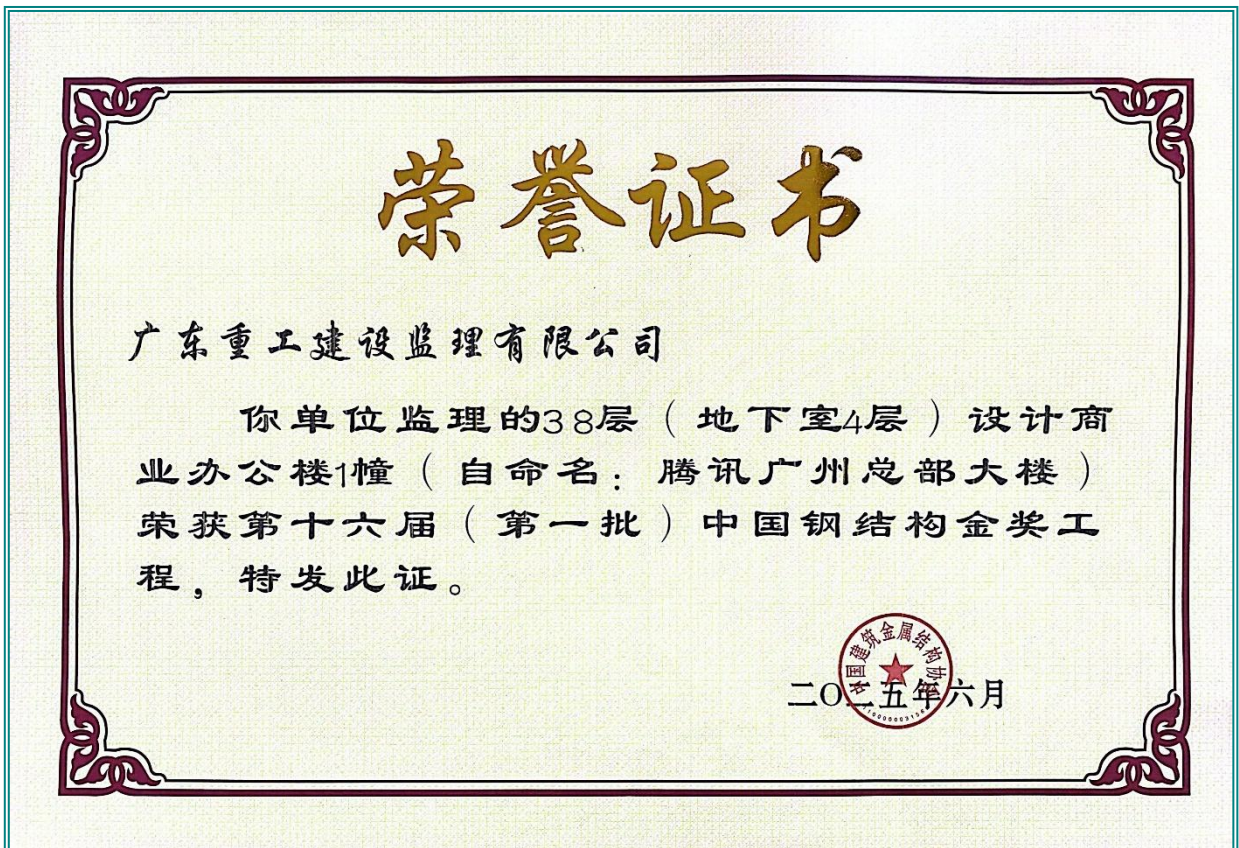 荣誉证书
广东重工建设监理有限公司
你单位监理的38层（地下室4层）设计商
业办公楼1幢（自命名：腾讯广州总部大楼）
荣获第十六届（第一批）中国钢结构金奖工
程，特发此证。
中国建筑金属结构协会
二〇二五年六月